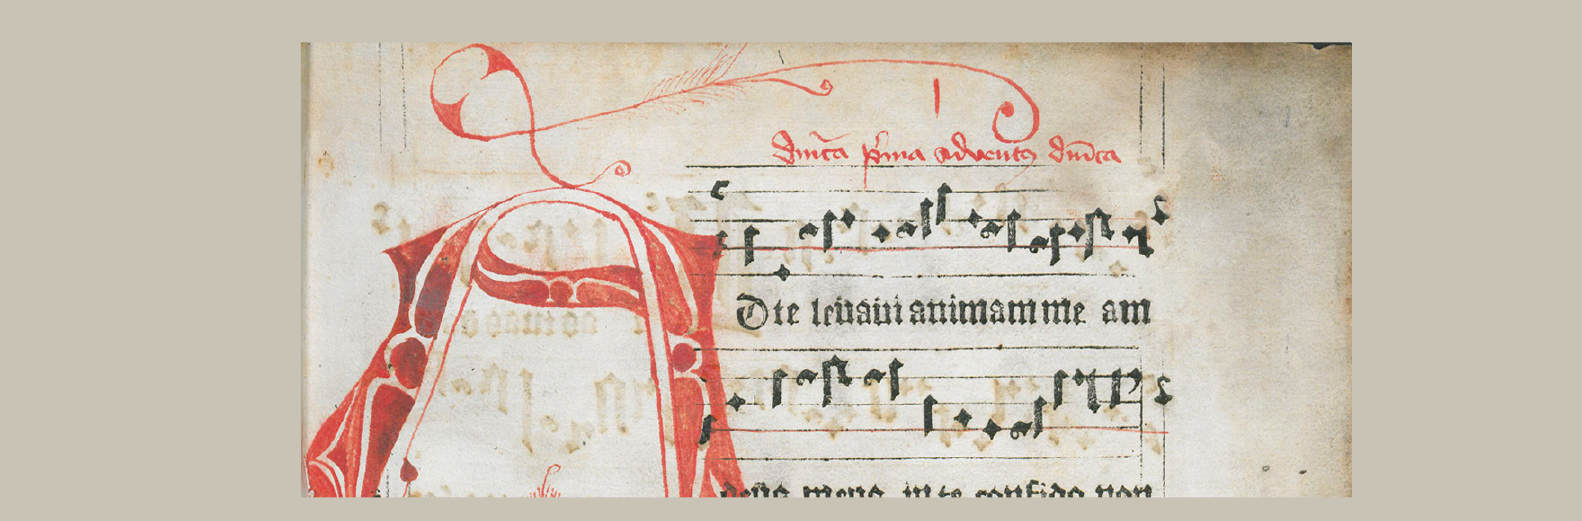 dn̄ica p̄ma adventꝯ dn̄ica
A
D te levavi animam me am
deus meus in te confido non